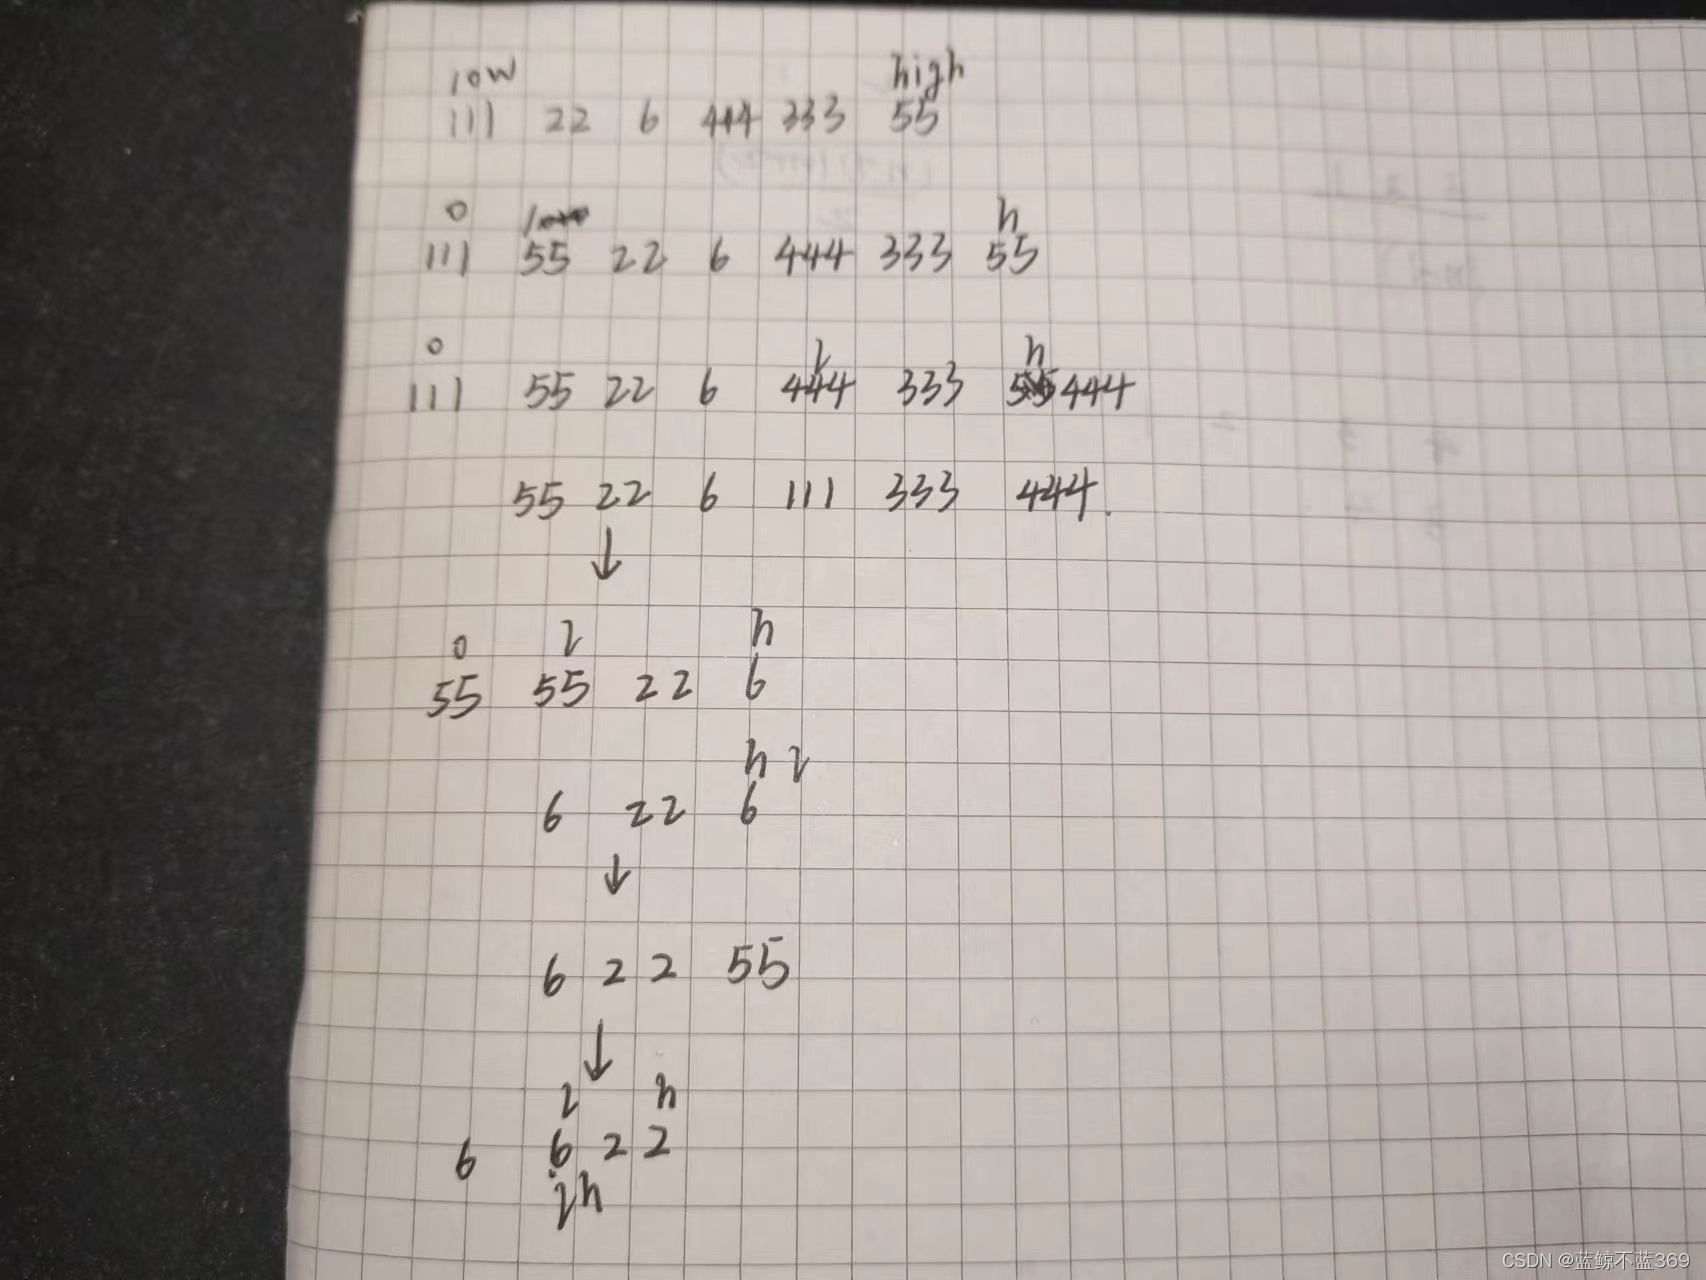 low high
111 22 6 444 333 55
0 h
111 55 22 6 444 333 55
0 l h
111 55 22 6 444 333 444
55 22 6 111 333 444
↓
0 l h
55 55 22 6
h l
6 22 6
↓
6 22 55
↓
l h
6 6 22
lh
CSDN @蓝鲸不蓝369